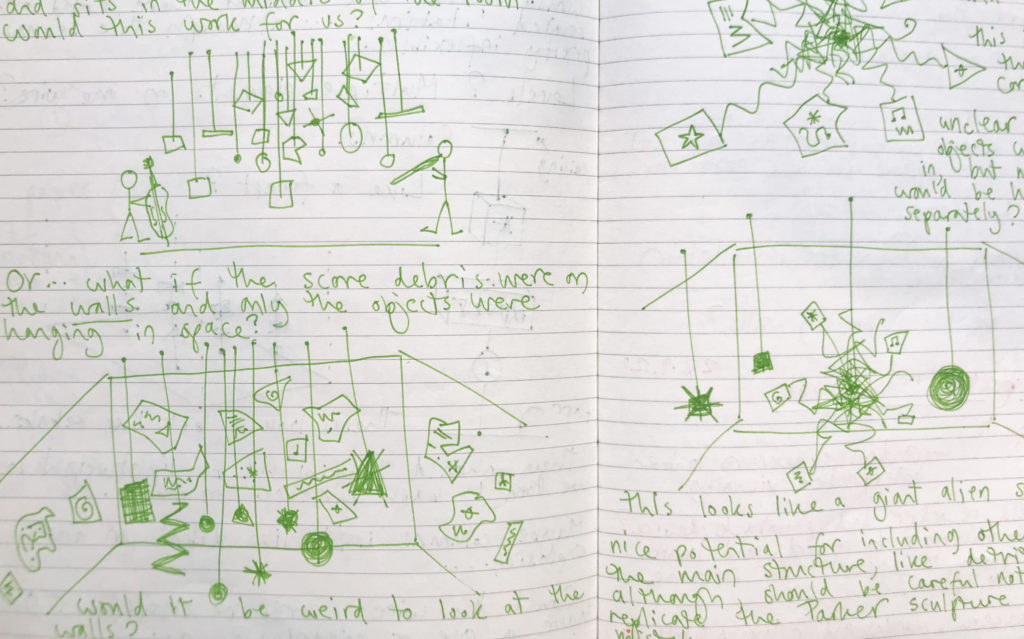 and sits in the middle of the room.
Would this work for us?
Or... what if the score debris were on
the walls and only the objects were
hanging in space?
would it be weird to look at the
walls?
this i
unclear
objects
in, but
would be h
separately?
This looks like a giant alien s
nice potential for including othe
the main structure, like detri
although should be careful not
replicate the Parker sculpture